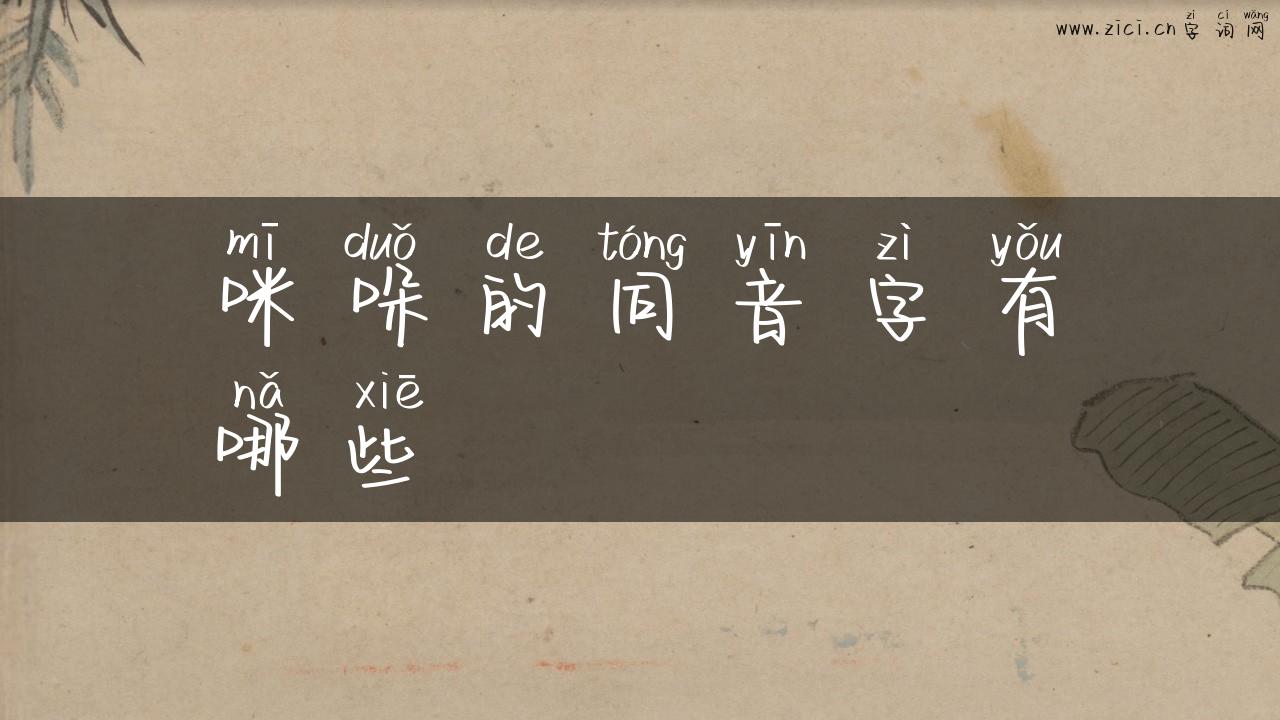 zì cí wǎng
www.zici.cn 字词网
mī duǒ de tóng yīn zì yǒu
咪哚的同音字有
nǎ xiē
哪些